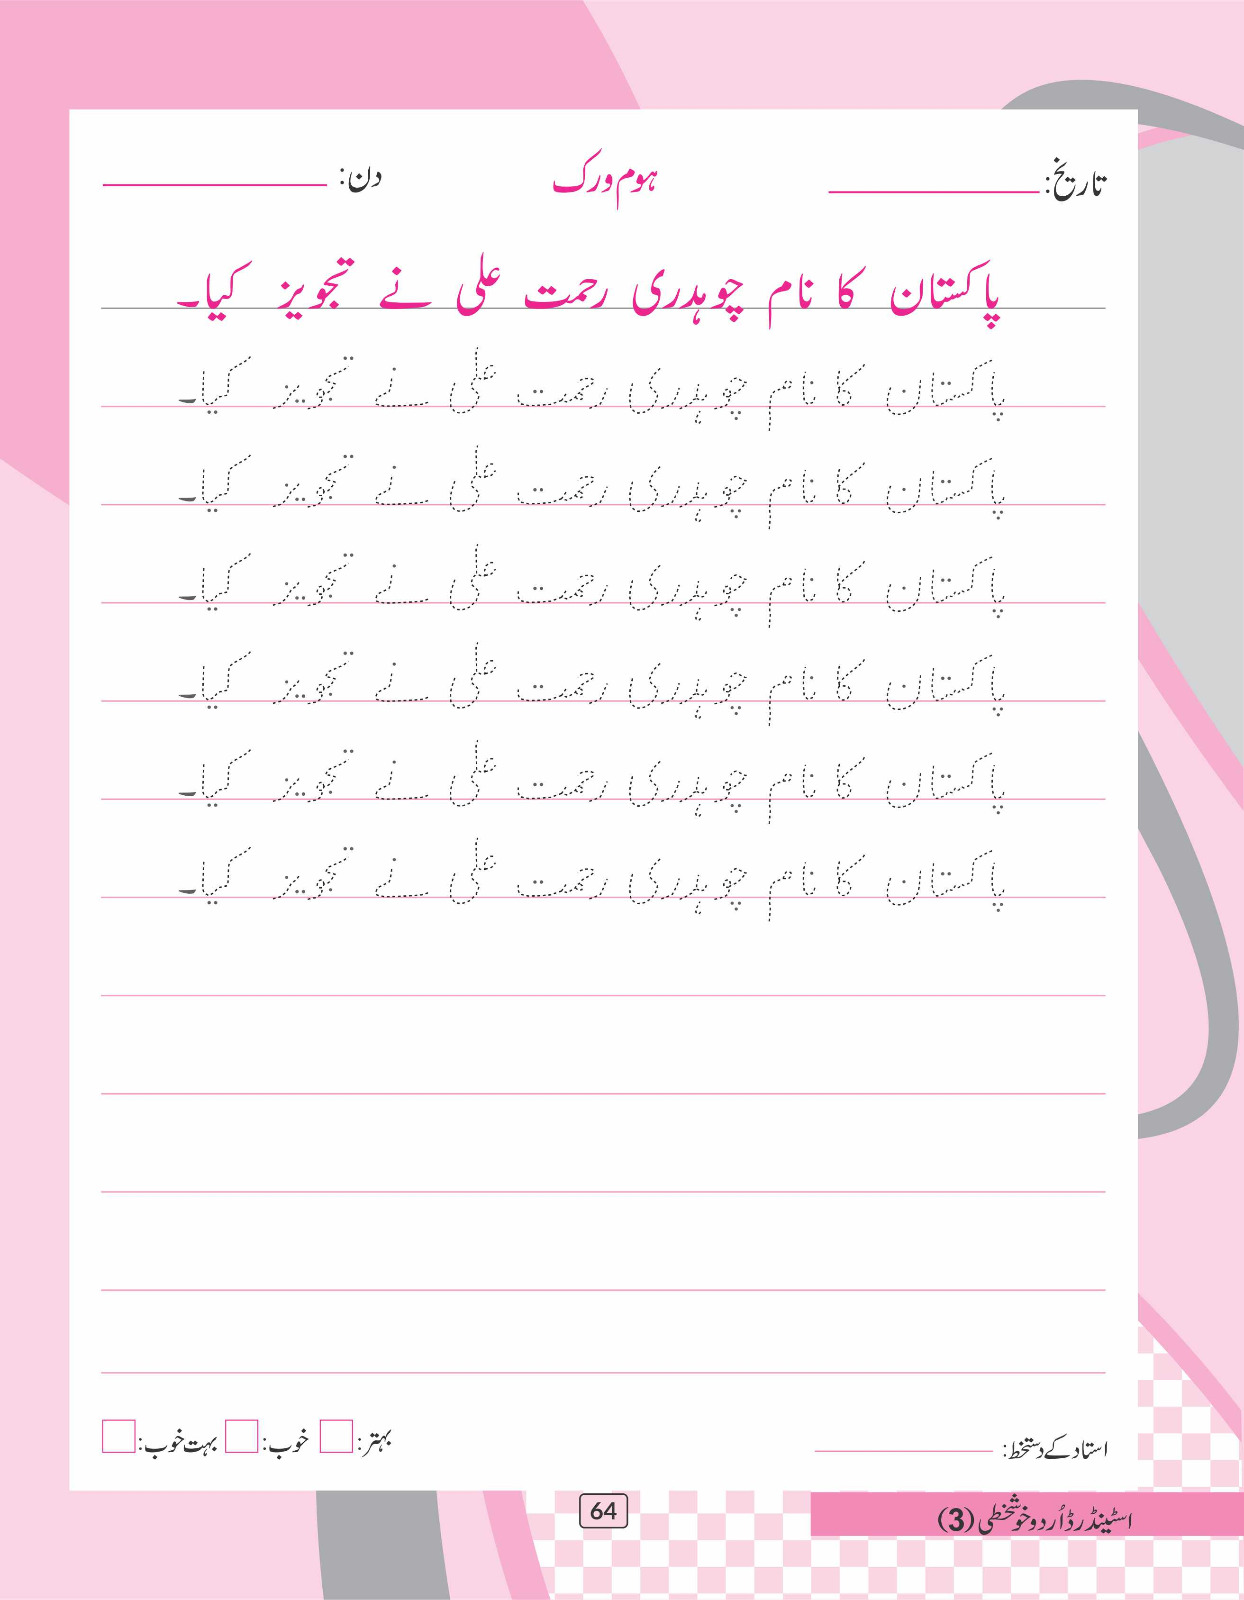 تاریخ: ہوم ورک دن:
پاکستان کا نام چوہدری رحمت علی نے تجویز کیا۔
پاکستان کا نام چوہدری رحمت علی نے تجویز کیا۔
پاکستان کا نام چوہدری رحمت علی نے تجویز کیا۔
پاکستان کا نام چوہدری رحمت علی نے تجویز کیا۔
پاکستان کا نام چوہدری رحمت علی نے تجویز کیا۔
پاکستان کا نام چوہدری رحمت علی نے تجویز کیا۔
پاکستان کا نام چوہدری رحمت علی نے تجویز کیا۔
استاد کے دستخط: بہتر: خوب: بہت خوب:
اسٹینڈرڈ اُردو خوشخطی (3) 64